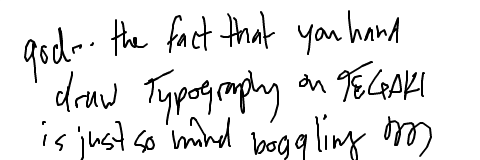 god... the fact that you hand
draw Typography on TEGAKI
is just so mind boggling